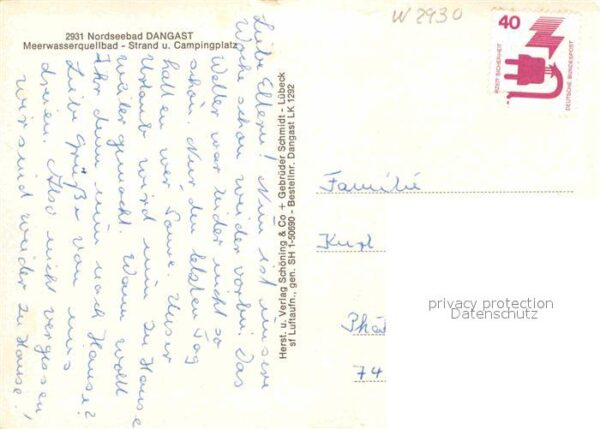 2931 Nordseebad DANGAST
Meerwasserquellbad - Strand u. Campingplatz
W 2930
40
JEDERZEIT SICHERHEIT
DEUTSCHE BUNDESPOST
Liebe Eltern! Nun ist unsere
Woche schon wieder vorbei. Das
Wetter war leider nicht so
schön. Nur den letzten Tag
hatten wir Sonne. Unser
Urlaub wird nun zu Hause
weiter gemacht. Wann wollt
Ihr denn nun nach Hause?
Liebe Grüße von uns
dreien. Also nicht vergessen
wir sind wieder zu Hause!
Herst. u. Verlag Schöning & Co + Gebrüder Schmidt - Lübeck
sf Luftaufn., gen. SH 1-50690 - Bestellnr. Dangast LK 1292
Familie
Kurt
74
privacy protection
Datenschutz